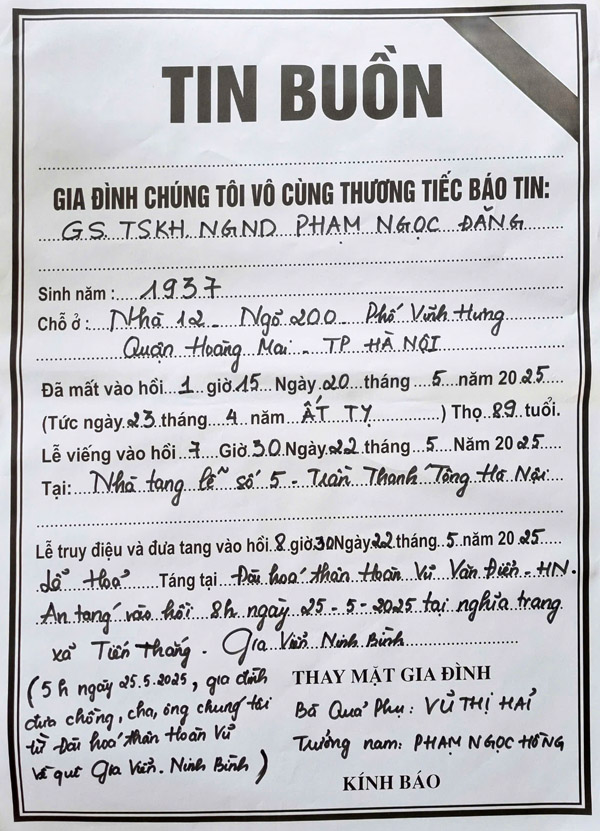 TIN BUỒN
GIA ĐÌNH CHÚNG TÔI VÔ CÙNG THƯƠNG TIẾC BÁO TIN:
GS. TSKH. NGND PHẠM NGỌC ĐĂNG
Sinh năm : 1937
Chỗ ở : Nhà 12 - Ngõ 200 - Phố Vĩnh Hưng
Quận Hoàng Mai - TP HÀ NỘI
Đã mất vào hồi 1 giờ 15 Ngày 20 tháng 5 năm 2025
(Tức ngày 23 tháng 4 năm ẤT TỴ ) Thọ 89 tuổi.
Lễ viếng vào hồi 7 Giờ 30 Ngày 22 tháng 5 Năm 2025
Tại: Nhà tang lễ số 5 - Trần Thanh Tông Hà Nội
Lễ truy điệu và đưa tang vào hồi 8 giờ 30 Ngày 22 tháng 5 năm 2025
Lễ Hoả Táng tại Đài hoá thân Hoàn Vũ Văn Điển - HN.
An táng vào hồi 8h ngày 25-5-2025 tại nghĩa trang
xã Tiến Thắng - Gia Viễn Ninh Bình
(5h ngày 25.5.2025, gia đình
đưa chồng, cha, ông chúng tôi
từ Đài hoá thân Hoàn Vũ
về quê Gia Viễn. Ninh Bình)
THAY MẶT GIA ĐÌNH
Bà Quả Phụ : VŨ THỊ HẢI
Trưởng nam: PHẠM NGỌC HỒNG
KÍNH BÁO